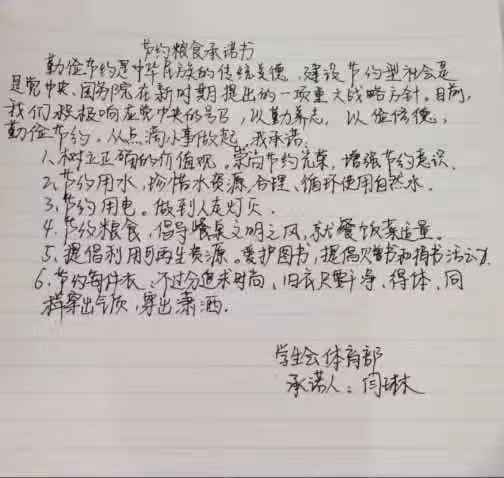 节约粮食承诺书
勤俭节约是中华民族的传统美德，建设节约型社会是
是党中央、国务院在新时期提出的一项重大战略方针。目前，
我们积极响应党中央的号召，以勤养志，以俭养德，
勤俭节约。从点滴小事做起，我承诺：
1、树立正确的价值观。崇尚节约光荣，增强节约意识、
2、节约用水，珍惜水资源，合理、循环使用自然水．
3、节约用电。做到人走灯灭．
4、节约粮食，倡导餐桌文明之风，就餐饭菜适量。
5、提倡利用可再生资源。爱护图书，提倡赠书和捐书活动．
6、节约每件衣、不过分追求时尚，旧衣只要干净、得体、同
样穿出气质，穿出潇洒．
学生会体育部
承诺人：闫琳